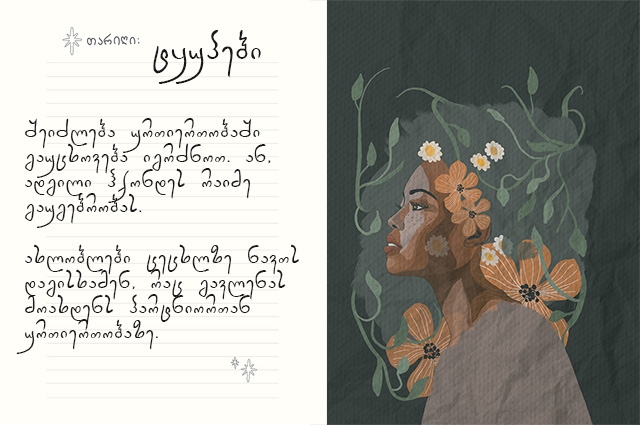 თარიღი:
ტყუპები
შეიძლება ურთიერთობაში
გაუცხოვება იგრძნოთ. ან,
ადგილი ჰქონდეს რაიმე
გაუგებრობას.
ახლობლები ცეცხლზე ნავთს
დაგისხამენ, რაც გავლენას
მოახდენს პარტნიორთან
ურთიერთობაზე.